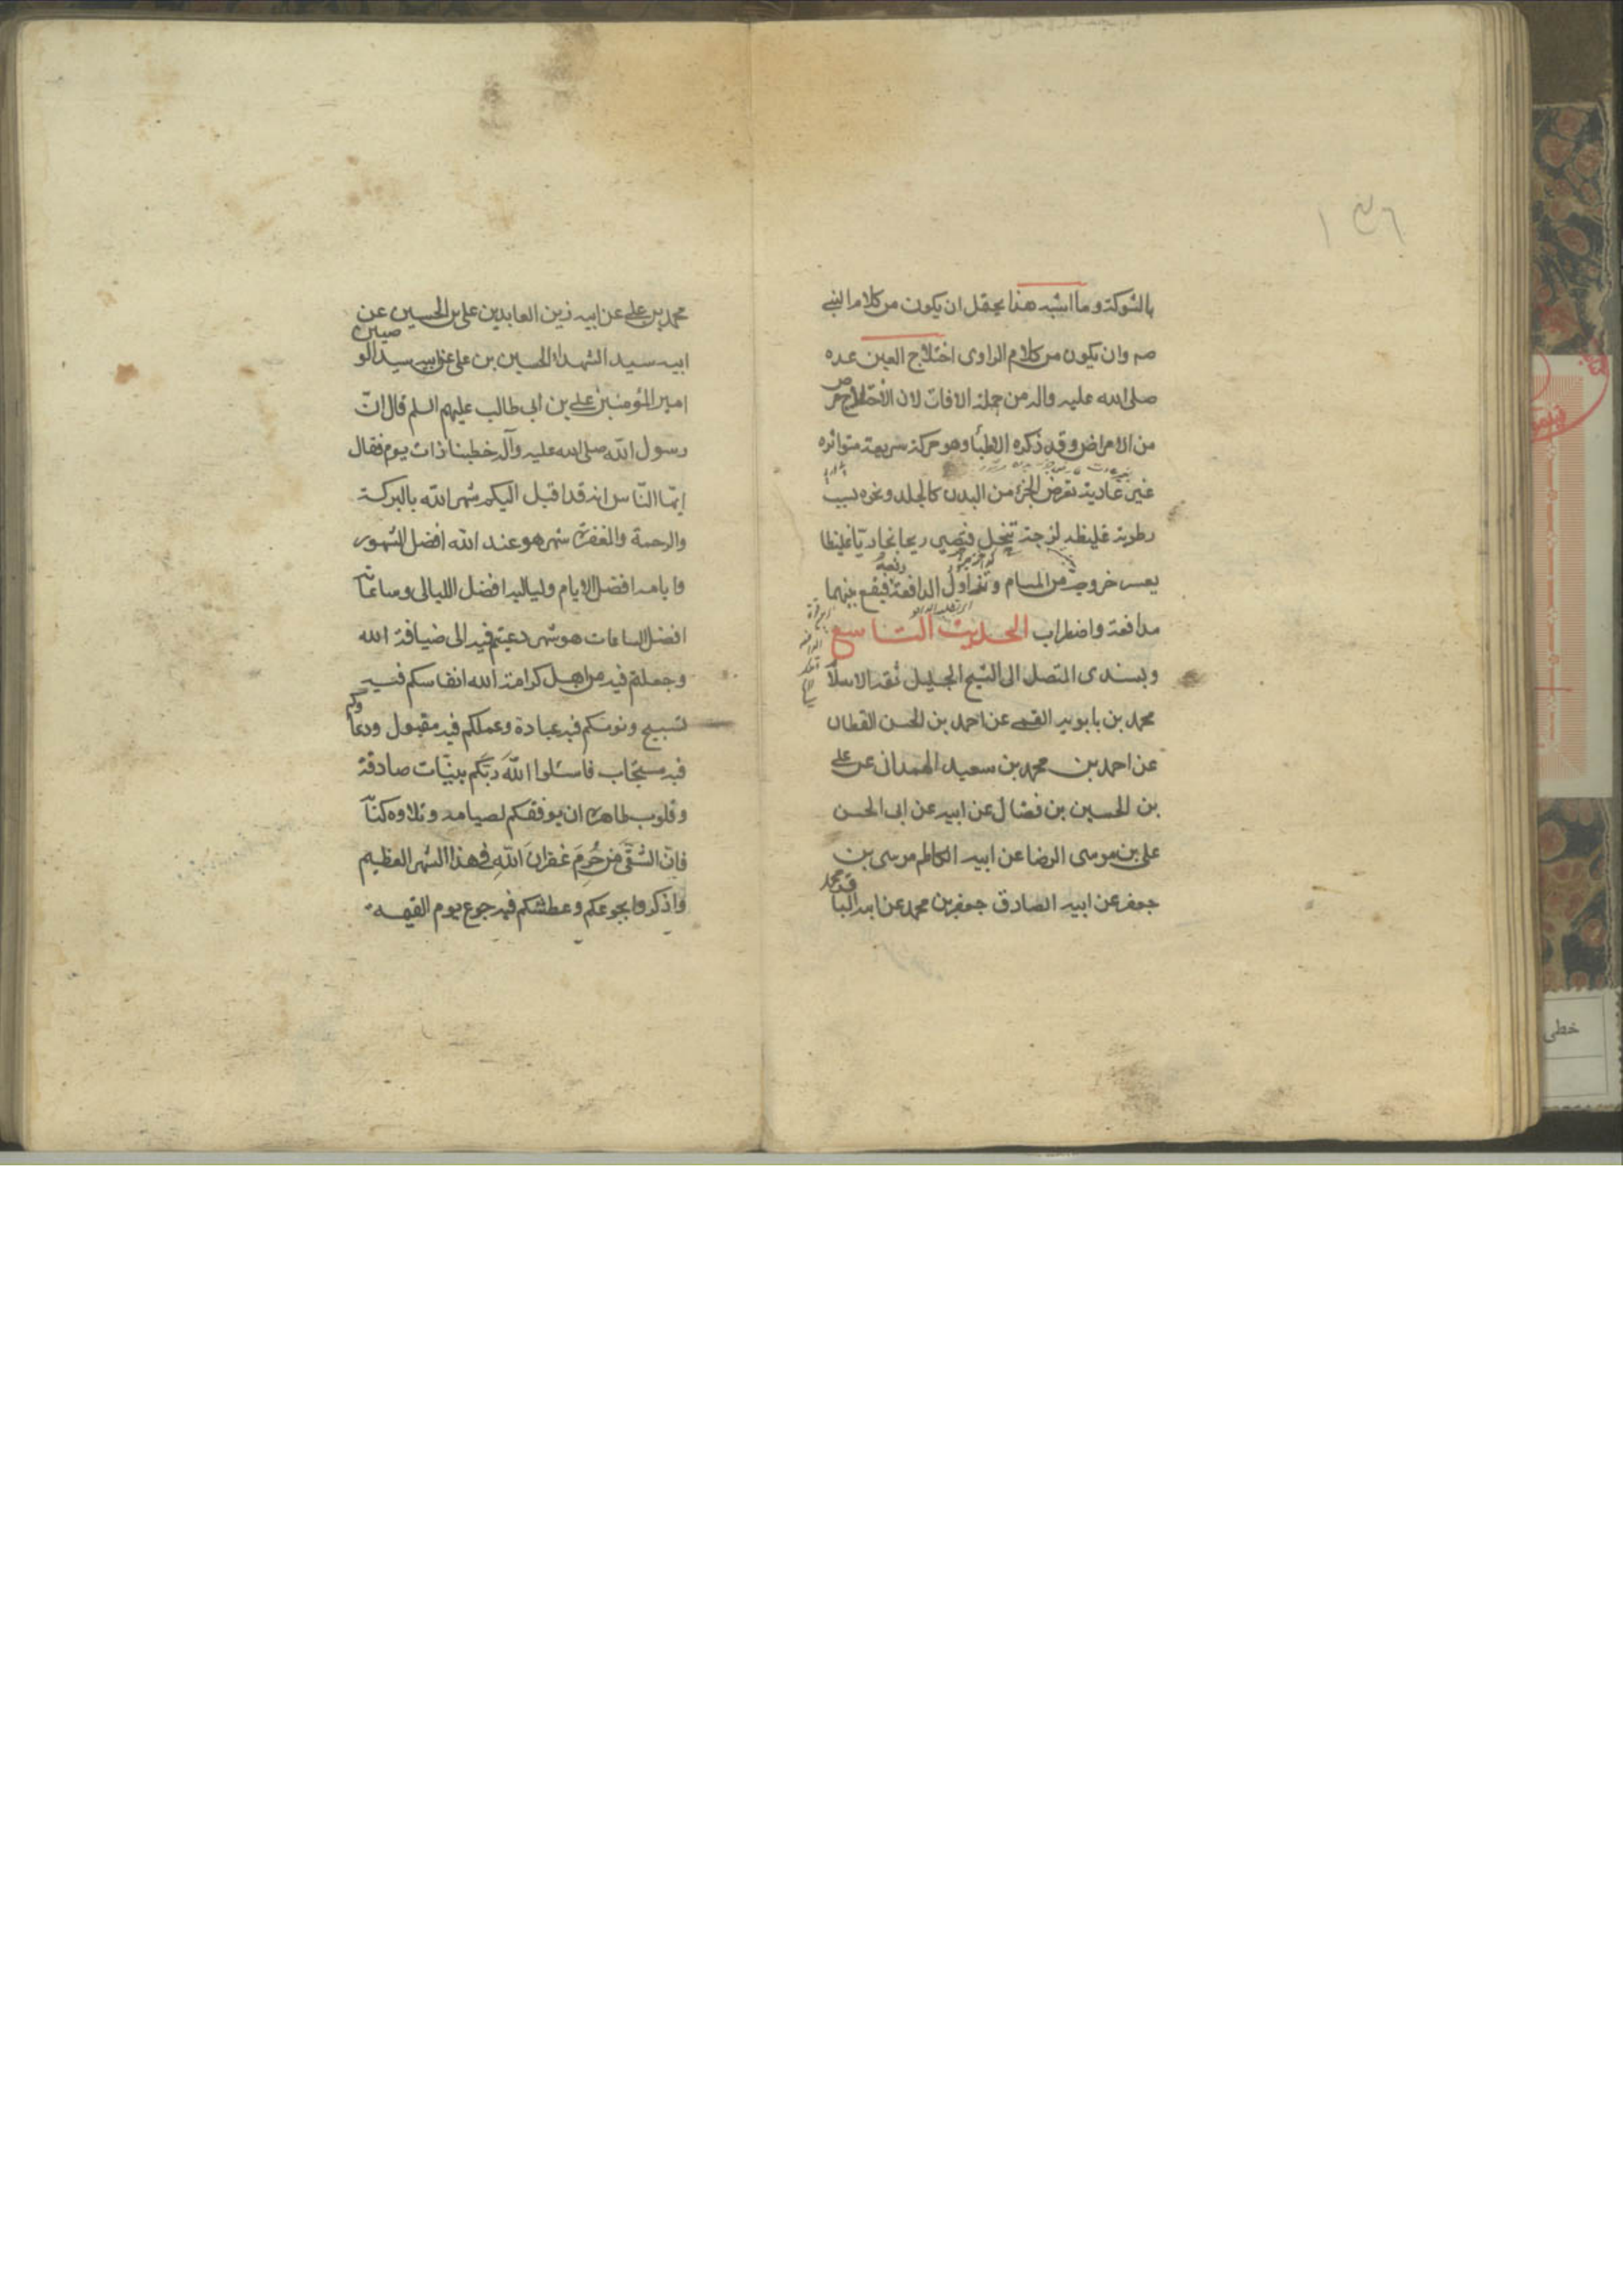 ١٣٦
بالشوكة وما اشبه هذا يحتمل ان يكون من كلام النبى
صم وان يكون من كلام الراوى اختلاج العين عده
صلى الله عليه واله من جملة الافات لان الاختلاج مرض
من الامراض وقد ذكره الاطبأ وهو حركة سريعة متواتره
غير عادية تعرض لجزء من البدن كالجلد ونحوه بسبب
رطوبة غليظه لزجة تنحل فتصير ريحا بخاريّا غليظا
يعسر خروجه من المسام وتزاول الدافعة دفعه فيقع بينهما
مدافعة واضطراب الحديث التاسع
وبسندى المتصل الى الشيخ الجليل ثقة الاسلآ
محمد بن بابويه القمى عن احمد بن الحسن القطان
عن احمد بن محمد بن سعيد الهمدانى عن على
بن الحسين بن فضال عن ابيه عن ابى الحسن
على بن موسى الرضا عن ابيه الكاظم موسى بن
جعفر عن ابيه الصادق جعفر بن محمد عن ابيه الباقر محمد
محمد بن على عن ابيه زين العابدين على بن الحسين عن
ابيه سيد الشهدآء الحسين بن على عن ابيه سيد الوصيين
امير المؤمنين على بن ابى طالب عليهم السلم قال انّ
رسول الله صلى الله عليه وآله خطبنا ذات يوم فقال
ايّها النّاس انه قد اقبل اليكم شهر الله بالبركة
والرحمة والمغفرة شهر هو عند الله افضل الشهور
وايامه افضل الايام ولياليه افضل الليالى وساعاته
افضل الساعات هو شهر دعيتم فيه الى ضيافة الله
وجعلتم فيه من اهل كرامة الله انفاسكم فيه
تسبيح ونومكم فيه عبادة وعملكم فيه مقبول ودعاؤكم
فيه مستجاب فاسئلوا اللهَ ربّكم بنيّات صادقة
وقلوب طاهرة ان يوفقكم لصيامه وتلاوه كتآ
فانّ الشّقىّ من حُرِمَ غفرانَ اللهِ فى هذا الشهر العظيم
واذكروا بجوعكم وعطشكم فيه جوع يوم القيمه
خطى